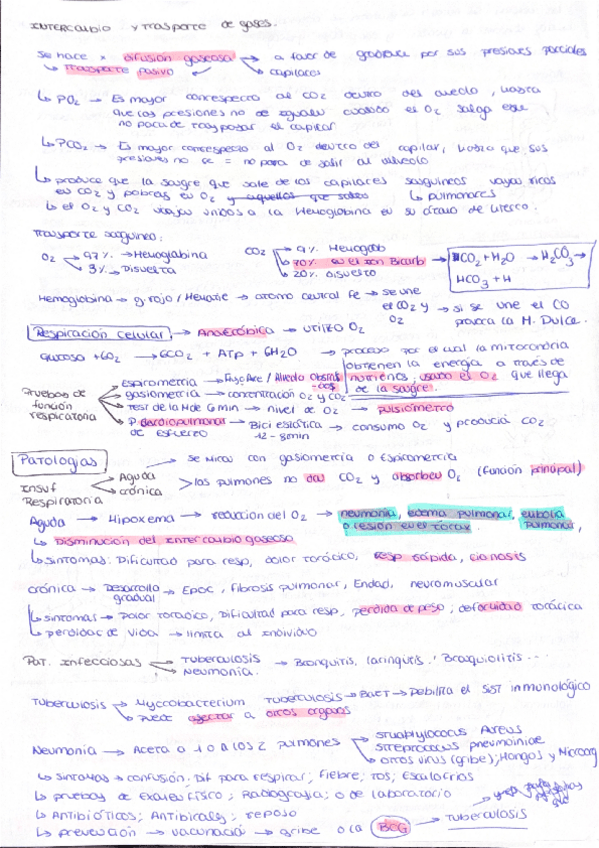 INTERCAMBIO y TRASPORTE de gases.
se hace x difusión gaseosa → a favor de gradiente por sus presiones parciales
↳ Trasporte pasivo ↳ capilares
↳ PO2 → Es mayor conrespecto al CO2 dentro del alveolo, hasta
que las presiones no se igualen cuando el O2 salga este
no para de traspasar el capilar
↳ PCO2 → Es mayor conrespecto al O2 dentro del capilar, hasta que sus
presiones no se = no para de salir al alveolo
↳ produce que la sangre que sale de los capilares sanguineos vayas ricos
en CO2 y pobres en O2 y ↳ pulmonares
↳ el O2 y CO2 viajan unidos a la Hemoglobina en su átomo de hierro.
Trasporte sanguineo:
O2 → 97% → Hemoglobina CO2 → 9% Hemoglob
3% → Disuelta 70% en el Ion Bicarb → CO2 + H2O → H2CO3 →
20% disuelto HCO3 + H
Hemoglobina → g. rojo / Hematie → atomo central Fe → se une
el CO2 y → si se une el CO
O2 provoca la M. Dulce.
Respiración celular → Anaeróbica → utiliza O2
glucosa + 6O2 → 6CO2 + ATP + 6H2O → proceso por el cual la mitocondria
obtienen la energía a través de
Pruebas de función respiratoria
Espirometría → Flujo Aire / Alveolo nutrientes, usando el O2 que llega
gasiometría → concentración O2 y CO2 de la sangre.
Test de la M de 6 min → nivel de O2 → pulsiómetro
P. Cardiopulmonar → Bici estática → consumo O2 y producía CO2
de esfuerzo 12 - 8min
Patologías → se miran con gasiometría o Espirometría
Insuf Respiratoria → Aguda
crónica > los pulmones no dan CO2 y absorben O2 (función principal)
Aguda → Hipoxema → reducción del O2 → neumonía, edema pulmonar, embolia
o lesión en el tórax pulmonar,
↳ Disminución del Intercambio gaseoso
↳ síntomas: Dificultad para resp, dolor torácico, Resp rápida, cianosis
crónica → Desarrollo gradual → Epoc, fibrosis pulmonar, Enfad, neuromuscular
↳ síntomas → Dolor toracico, Dificultad para resp, perdida de peso; deformidad torácica
↳ perdidas de vida → limita al individuo
Pat. Infecciosas → Tuberculosis → Bronquitis, laringitis, Bronquiolitis...
Neumonía.
Tuberculosis → Mycrobacterium Tuberculosis → Bact → Debilita el sist inmunológico
↳ puede afectar a otros organos
Neumonía → Afecta a 1 o a los 2 pulmones → Staphylococcus Aureus
Streprococcus pneumoniae
otros virus (gribe); Hongos y Microorg
↳ síntomas → confusión. Dif para respirar; Fiebre; Tos; Escalofríos
↳ pruebas de Examen físico; Radiografía; o de laboratorio
↳ Antibióticos; Antibirales; reposo
↳ prevención → vacunación → gribe o la BCG → Tuberculosis